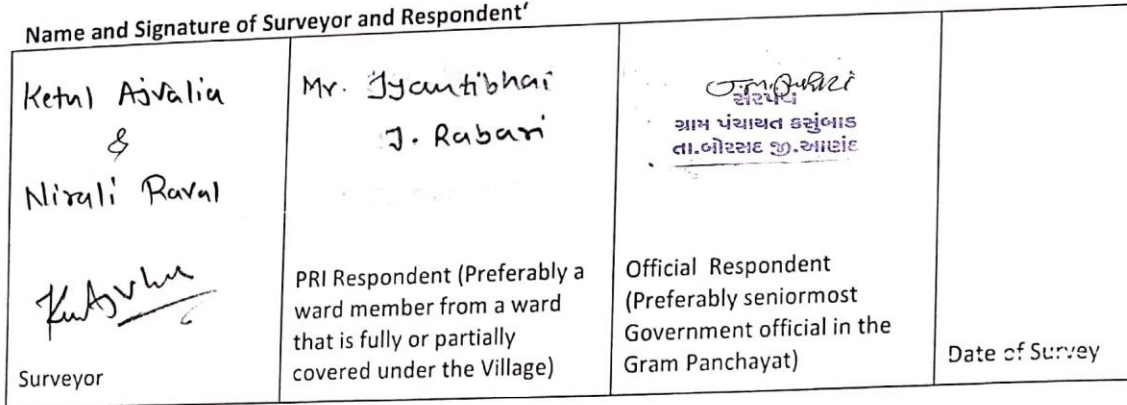 Name and Signature of Surveyor and Respondent'
Ketul Ajvalia
&
Nirali Raval
Surveyor
Mr. Jyantibhai
J. Rabari
PRI Respondent (Preferably a
ward member from a ward
that is fully or partially
covered under the Village)
સરપંચ
ગ્રામ પંચાયત કસુંબાડ
તા.બોરસદ જી.આણંદ
Official Respondent
(Preferably seniormost
Government official in the
Gram Panchayat)
Date of Survey